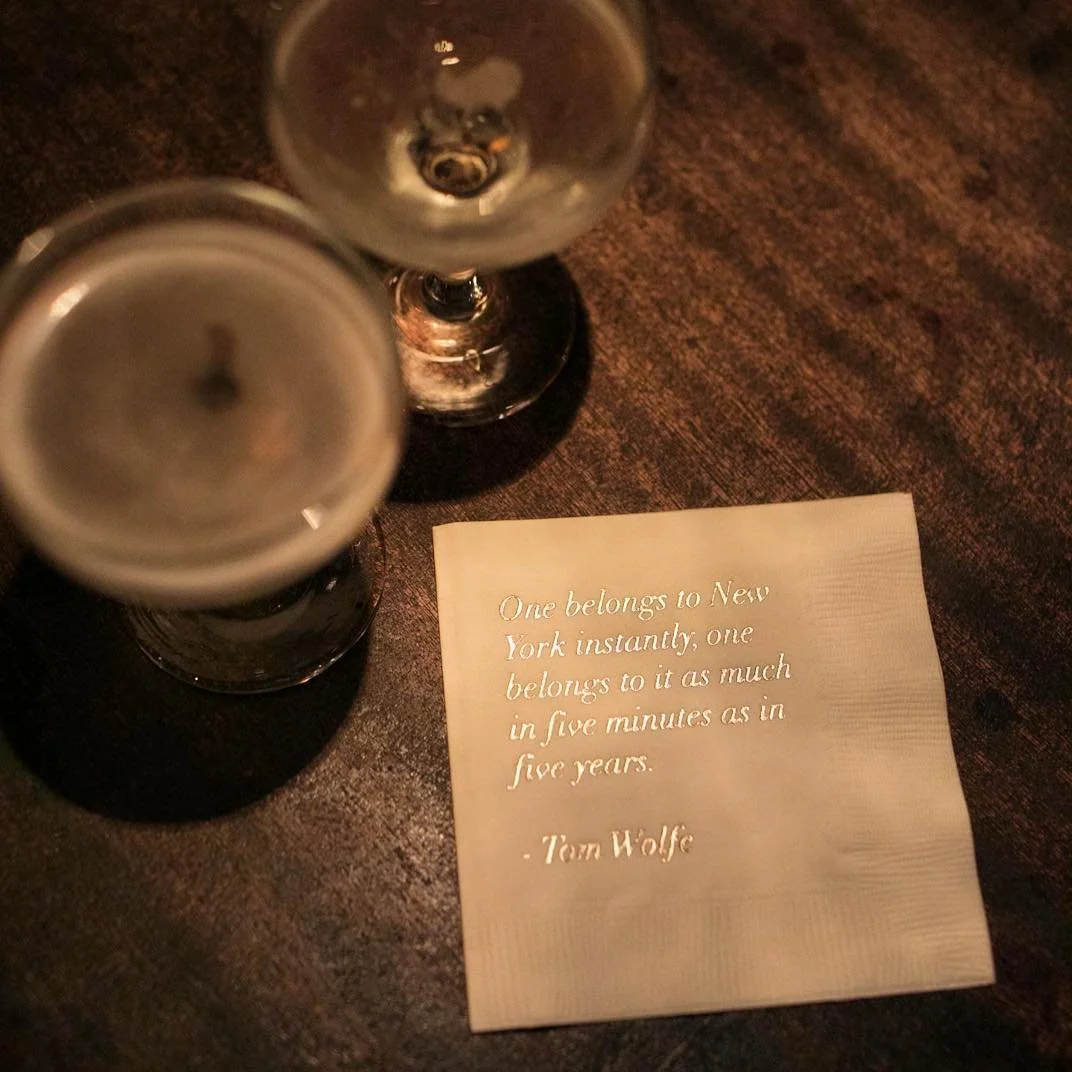 One belongs to New
York instantly, one
belongs to it as much
in five minutes as in
five years.
- Tom Wolfe